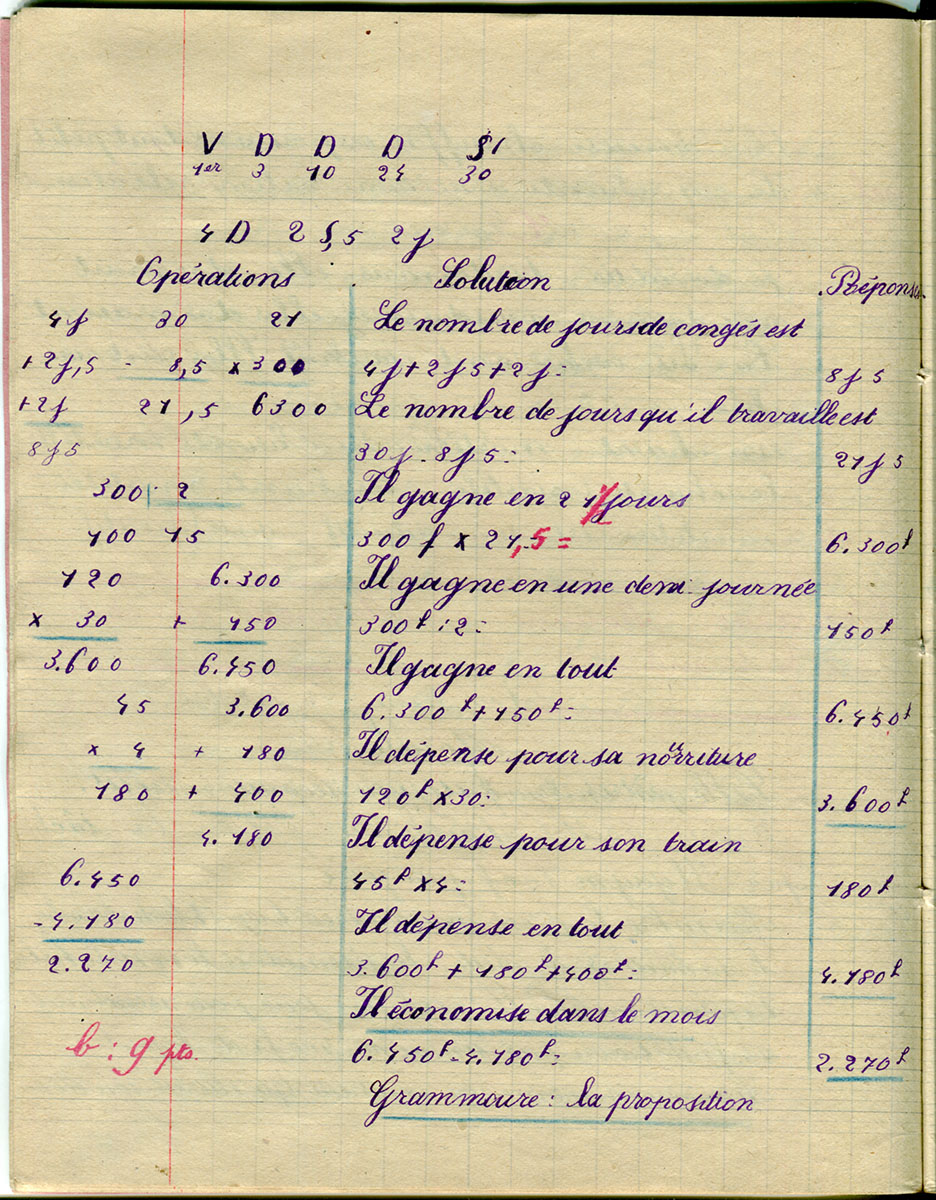 V D D D S1
1er 3 10 24 30
4 D 2 S,5 2j
Opérations Solution Réponses
4j 30 21 Le nombre de jours de congés est
+2j,5 - 8,5 × 300 4j+2j5+2j= 8j5
+2j 21,5 6300 Le nombre de jours qu'il travaille est
8j5 30j-8j5= 21j5
300 2 Il gagne en 21 jours
100 15 300f × 21,5= 6.300f
120 6.300 Il gagne en une demi journée
× 30 + 150 300f:2= 150f
3.600 6.450 Il gagne en tout
45 3.600 6.300f+150f= 6.450f
× 4 + 180 Il dépense pour sa norriture
180 + 400 120f×30= 3.600f
4.180 Il dépense pour son train
6.450 45f×4= 180f
-4.180 Il dépense en tout
2.270 3.600f+180f+400f= 4.180f
Il économise dans le mois
b : 9 pts. 6.450f-4.180f= 2.270f
Grammoure : la proposition